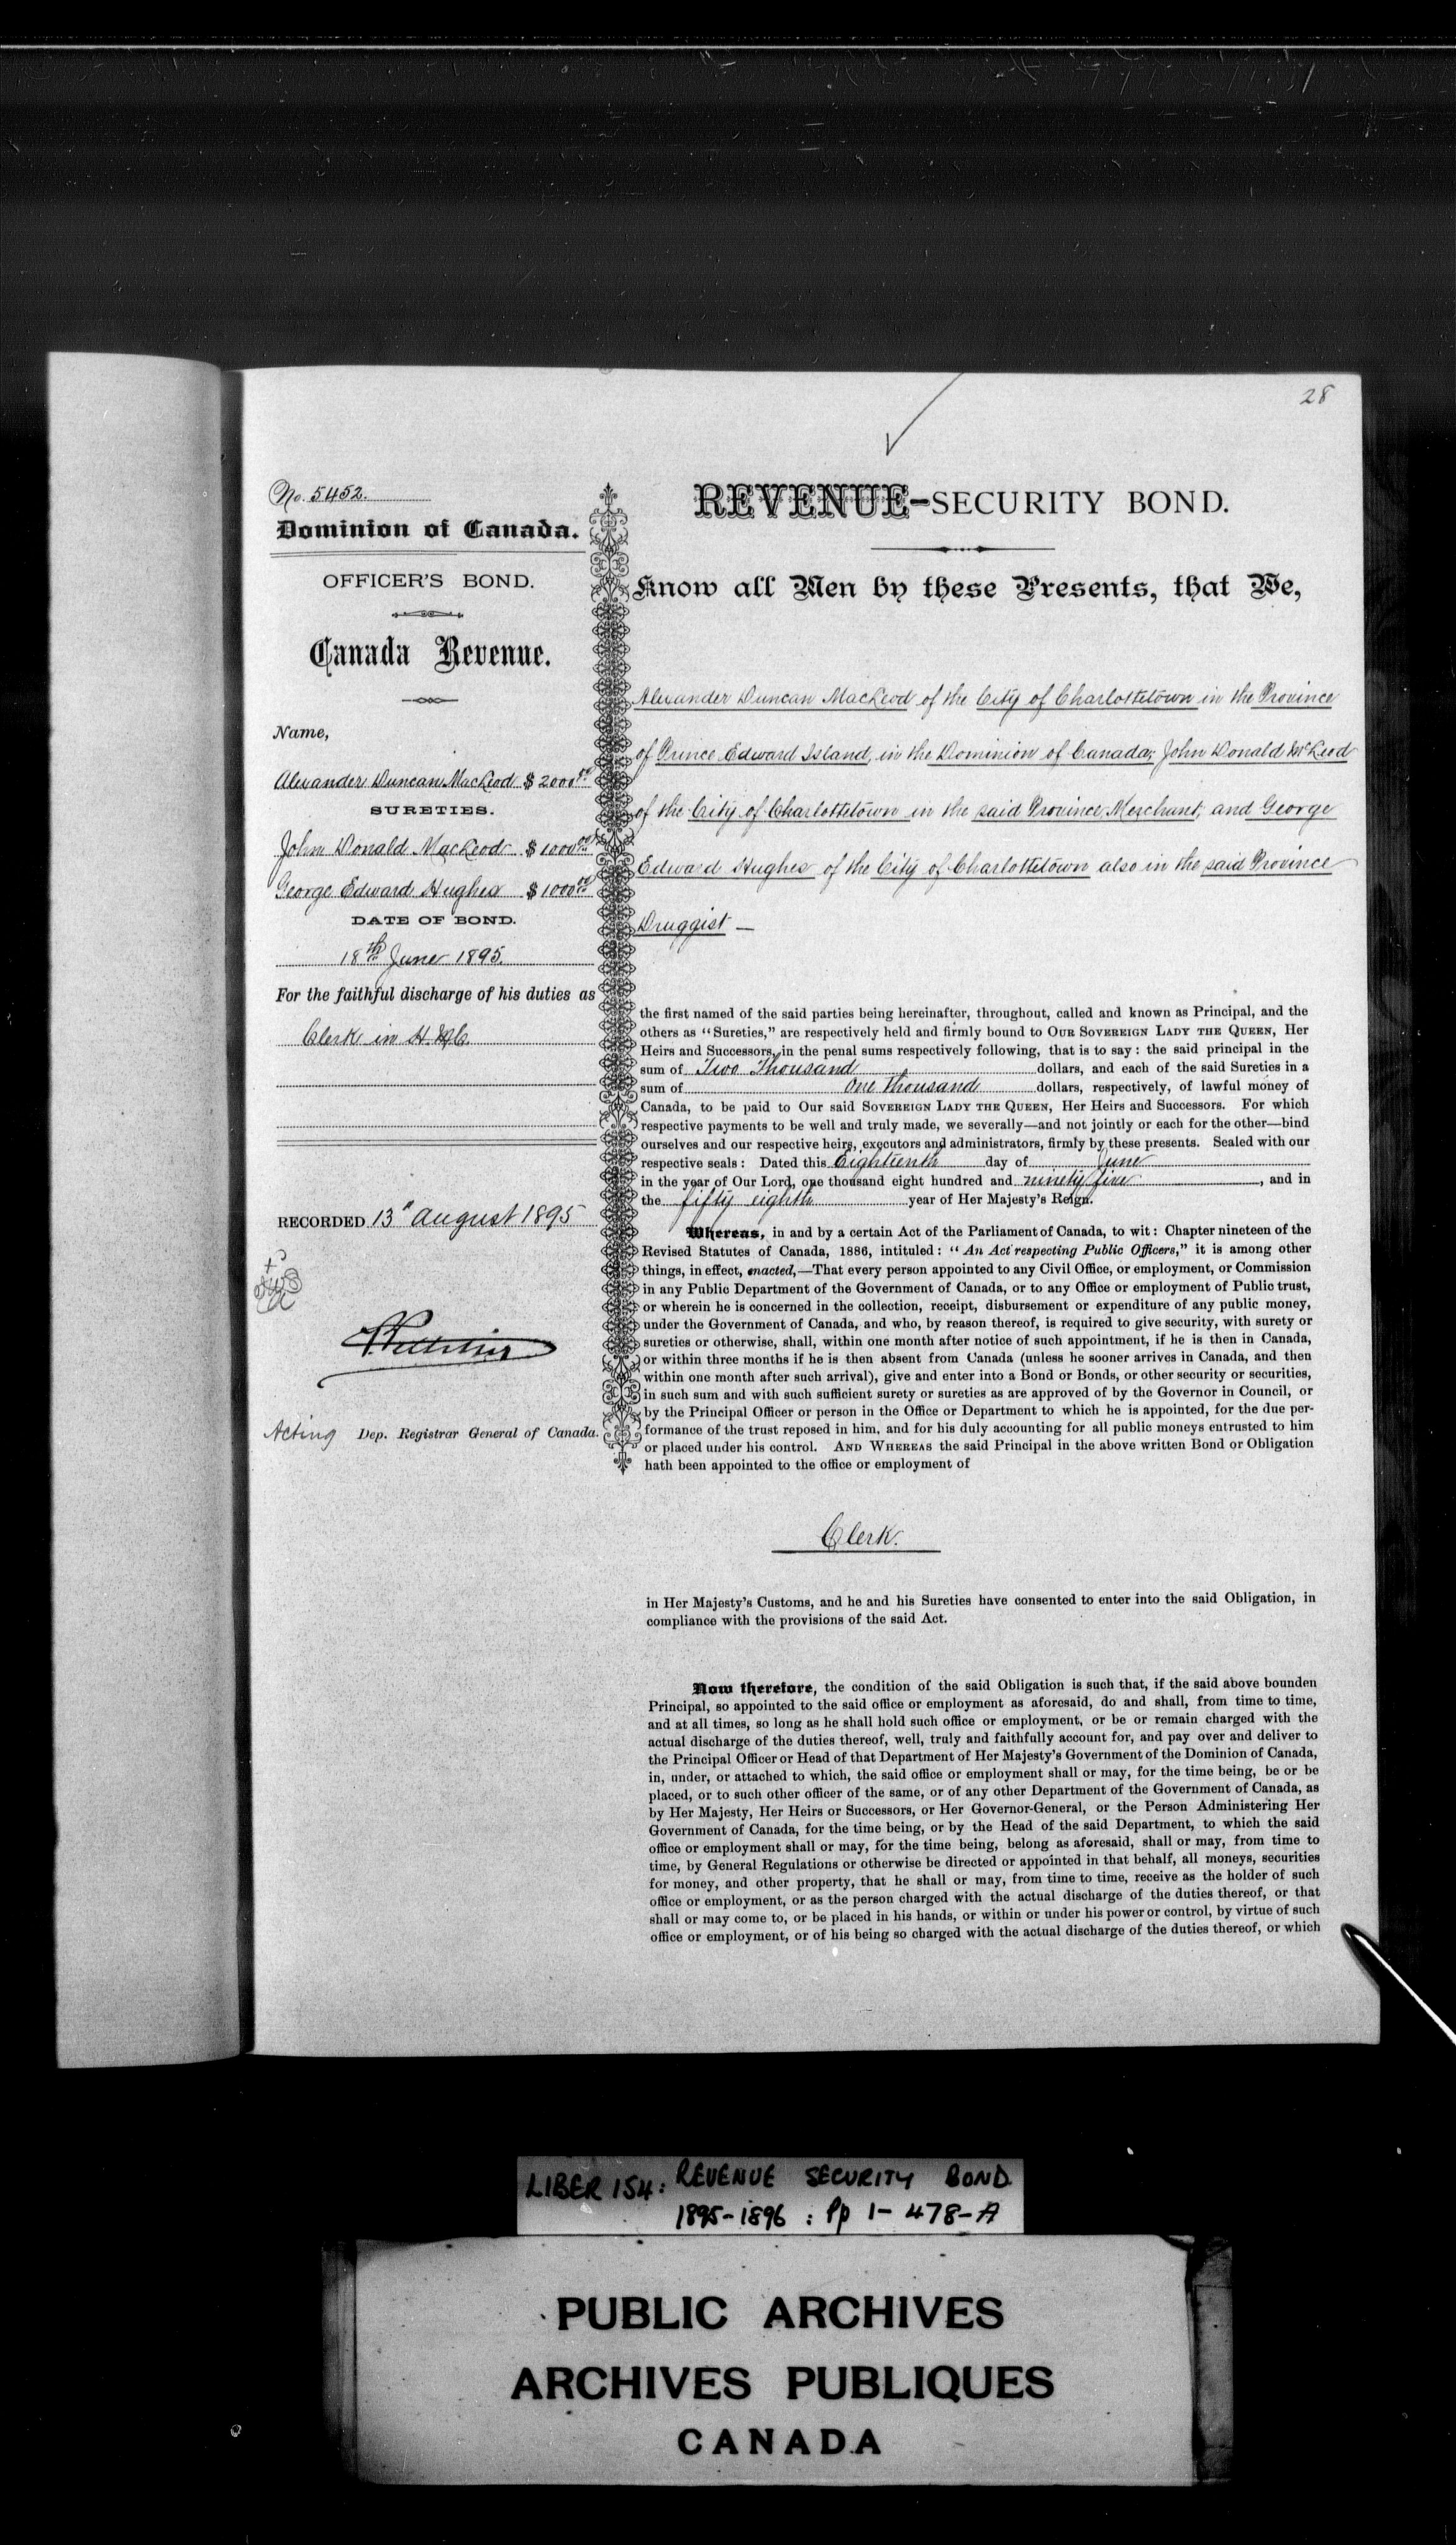 28
No. 5452.
Dominion of Canada.
OFFICER'S BOND.
Canada Revenue.
Name,
Alexander Duncan MacLeod $ 2000 00
SURETIES.
John Donald MacLeod $ 1000 00
George Edward Hughes $ 1000 00
DATE OF BOND.
18th June 1895.
For the faithful discharge of his duties as
Clerk in H. M. C.
RECORDED 13th August 1895
Acting Dep. Registrar General of Canada.
REVENUE-SECURITY BOND.
Know all Men by these Presents, that We,
Alexander Duncan MacLeod of the City of Charlottetown in the Province
of Prince Edward Island, in the Dominion of Canada; John Donald McLeod
of the City of Charlottetown in the said Province, Merchant, and George
Edward Hughes of the City of Charlottetown also in the said Province
Druggist —
the first named of the said parties being hereinafter, throughout, called and known as Principal, and the
others as "Sureties," are respectively held and firmly bound to OUR SOVEREIGN LADY THE QUEEN, Her
Heirs and Successors, in the penal sums respectively following, that is to say: the said principal in the
sum of Two Thousand dollars, and each of the said Sureties in a
sum of one thousand dollars, respectively, of lawful money of
Canada, to be paid to Our said SOVEREIGN LADY THE QUEEN, Her Heirs and Successors. For which
respective payments to be well and truly made, we severally—and not jointly or each for the other—bind
ourselves and our respective heirs, executors and administrators, firmly by these presents. Sealed with our
respective seals: Dated this Eighteenth day of June
in the year of Our Lord, one thousand eight hundred and ninety five, and in
the fifty eighth year of Her Majesty's Reign.
Whereas, in and by a certain Act of the Parliament of Canada, to wit: Chapter nineteen of the
Revised Statutes of Canada, 1886, intituled: "An Act respecting Public Officers," it is among other
things, in effect, enacted,—That every person appointed to any Civil Office, or employment, or Commission
in any Public Department of the Government of Canada, or to any Office or employment of Public trust,
or wherein he is concerned in the collection, receipt, disbursement or expenditure of any public money,
under the Government of Canada, and who, by reason thereof, is required to give security, with surety or
sureties or otherwise, shall, within one month after notice of such appointment, if he is then in Canada,
or within three months if he is then absent from Canada (unless he sooner arrives in Canada, and then
within one month after such arrival), give and enter into a Bond or Bonds, or other security or securities,
in such sum and with such sufficient surety or sureties as are approved of by the Governor in Council, or
by the Principal Officer or person in the Office or Department to which he is appointed, for the due per-
formance of the trust reposed in him, and for his duly accounting for all public moneys entrusted to him
or placed under his control. AND WHEREAS the said Principal in the above written Bond or Obligation
hath been appointed to the office or employment of
Clerk.
in Her Majesty's Customs, and he and his Sureties have consented to enter into the said Obligation, in
compliance with the provisions of the said Act.
Now therefore, the condition of the said Obligation is such that, if the said above bounden
Principal, so appointed to the said office or employment as aforesaid, do and shall, from time to time,
and at all times, so long as he shall hold such office or employment, or be or remain charged with the
actual discharge of the duties thereof, well, truly and faithfully account for, and pay over and deliver to
the Principal Officer or Head of that Department of Her Majesty's Government of the Dominion of Canada,
in, under, or attached to which, the said office or employment shall or may, for the time being, be or be
placed, or to such other officer of the same, or of any other Department of the Government of Canada, as
by Her Majesty, Her Heirs or Successors, or Her Governor-General, or the Person Administering Her
Government of Canada, for the time being, or by the Head of the said Department, to which the said
office or employment shall or may, for the time being, belong as aforesaid, shall or may, from time to
time, by General Regulations or otherwise be directed or appointed in that behalf, all moneys, securities
for money, and other property, that he shall or may, from time to time, receive as the holder of such
office or employment, or as the person charged with the actual discharge of the duties thereof, or that
shall or may come to, or be placed in his hands, or within or under his power or control, by virtue of such
office or employment, or of his being so charged with the actual discharge of the duties thereof, or which
LIBER 154: REVENUE SECURITY BOND
1895-1896 : Pp 1- 478-A
PUBLIC ARCHIVES
ARCHIVES PUBLIQUES
CANADA